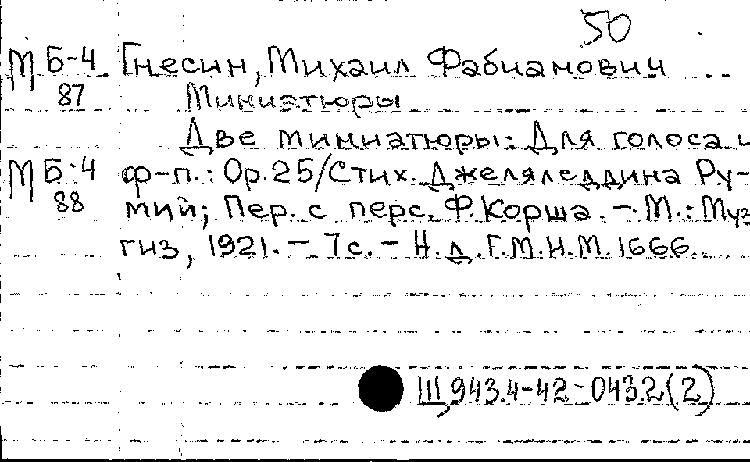 50
М Б-4 Гнесин, Михаил Фабианович
87 Миниатюры
Две миниатюры: Для голоса и
М Б-4 ф-п.: Ор.25/Стих. Джеляледдина Ру-
88 мий; Пер. с перс. Ф.Корша. — М.: Муз
гиз, 1921. — 7с. — Н.д. Г.М.Н.М. 1666.
Щ943.4-42-043.2(2)